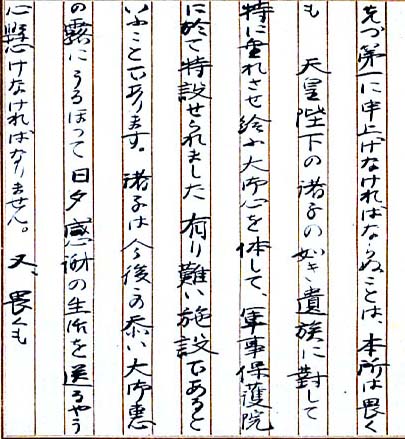 先づ第一に申上げなければならぬことは、本所は畏く
も　天皇陛下の諸子の如き遺族に對して
特に垂れさせ給ふ大御心を体して、軍事保護院
に於て特設せられました有り難い施設であると
いふことであります。諸子は今後この忝い大御恵
の露にうるほって日夕感謝の生活を送るやう
心懸けなければなりません。又、畏くも